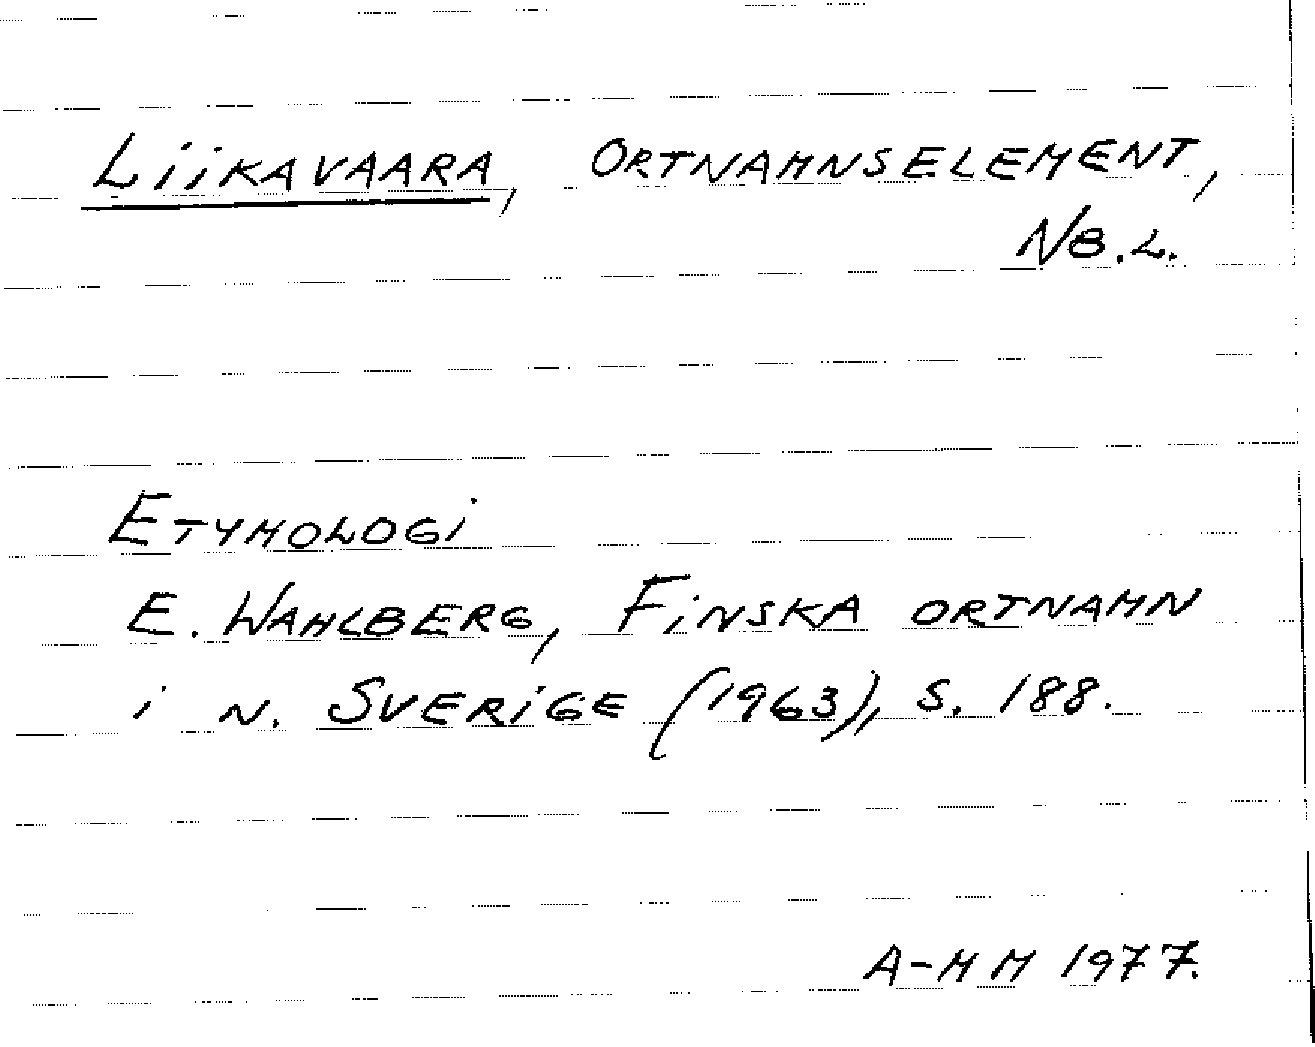 Liikavaara, Ortnamnselement,
Nb.L.
Etymologi
E. Wahlberg, Finska ortnamn
i n. Sverige (1963), s. 188.
A-MM 1977.